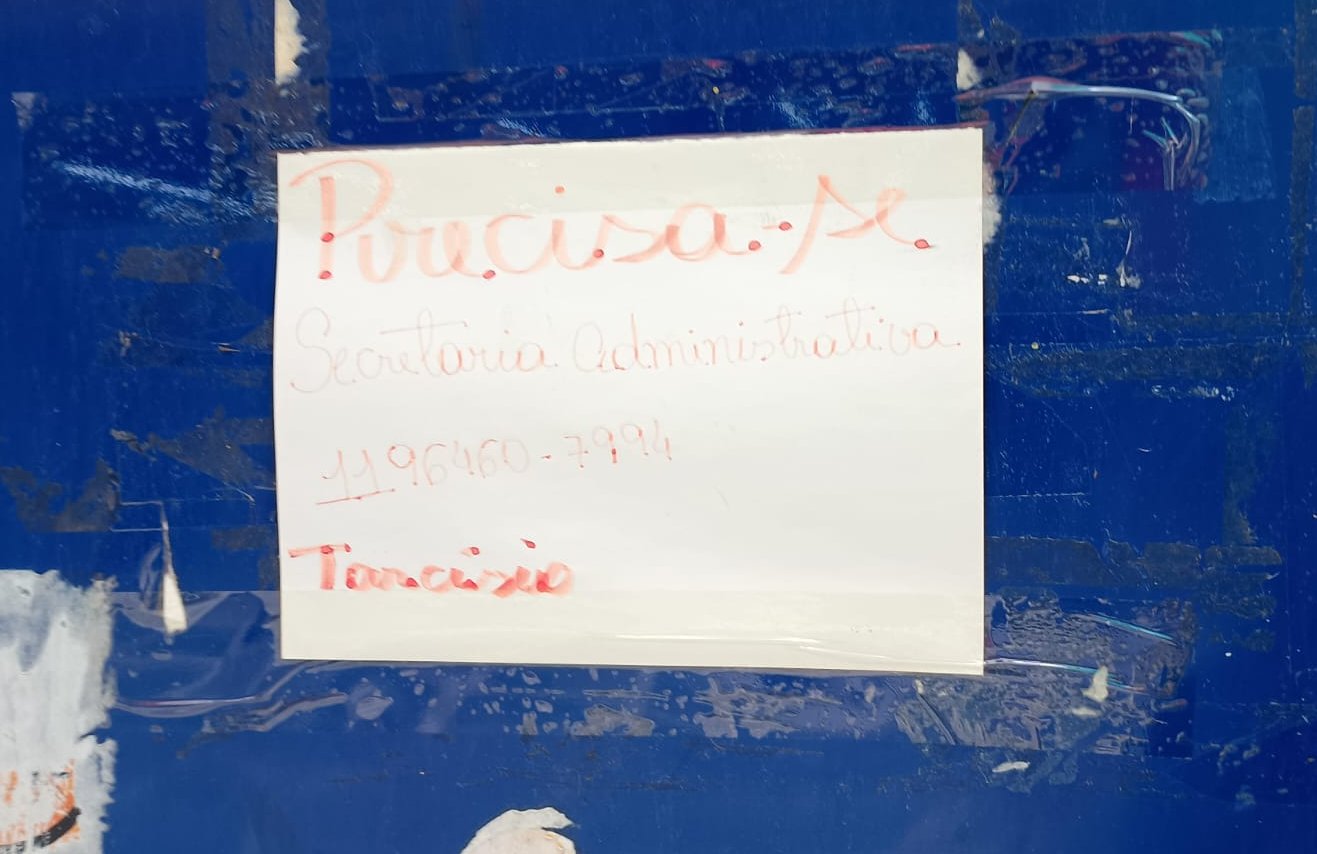 Precisa-se
Secretaria Administrativa
11 96460-7994
Tarcisio